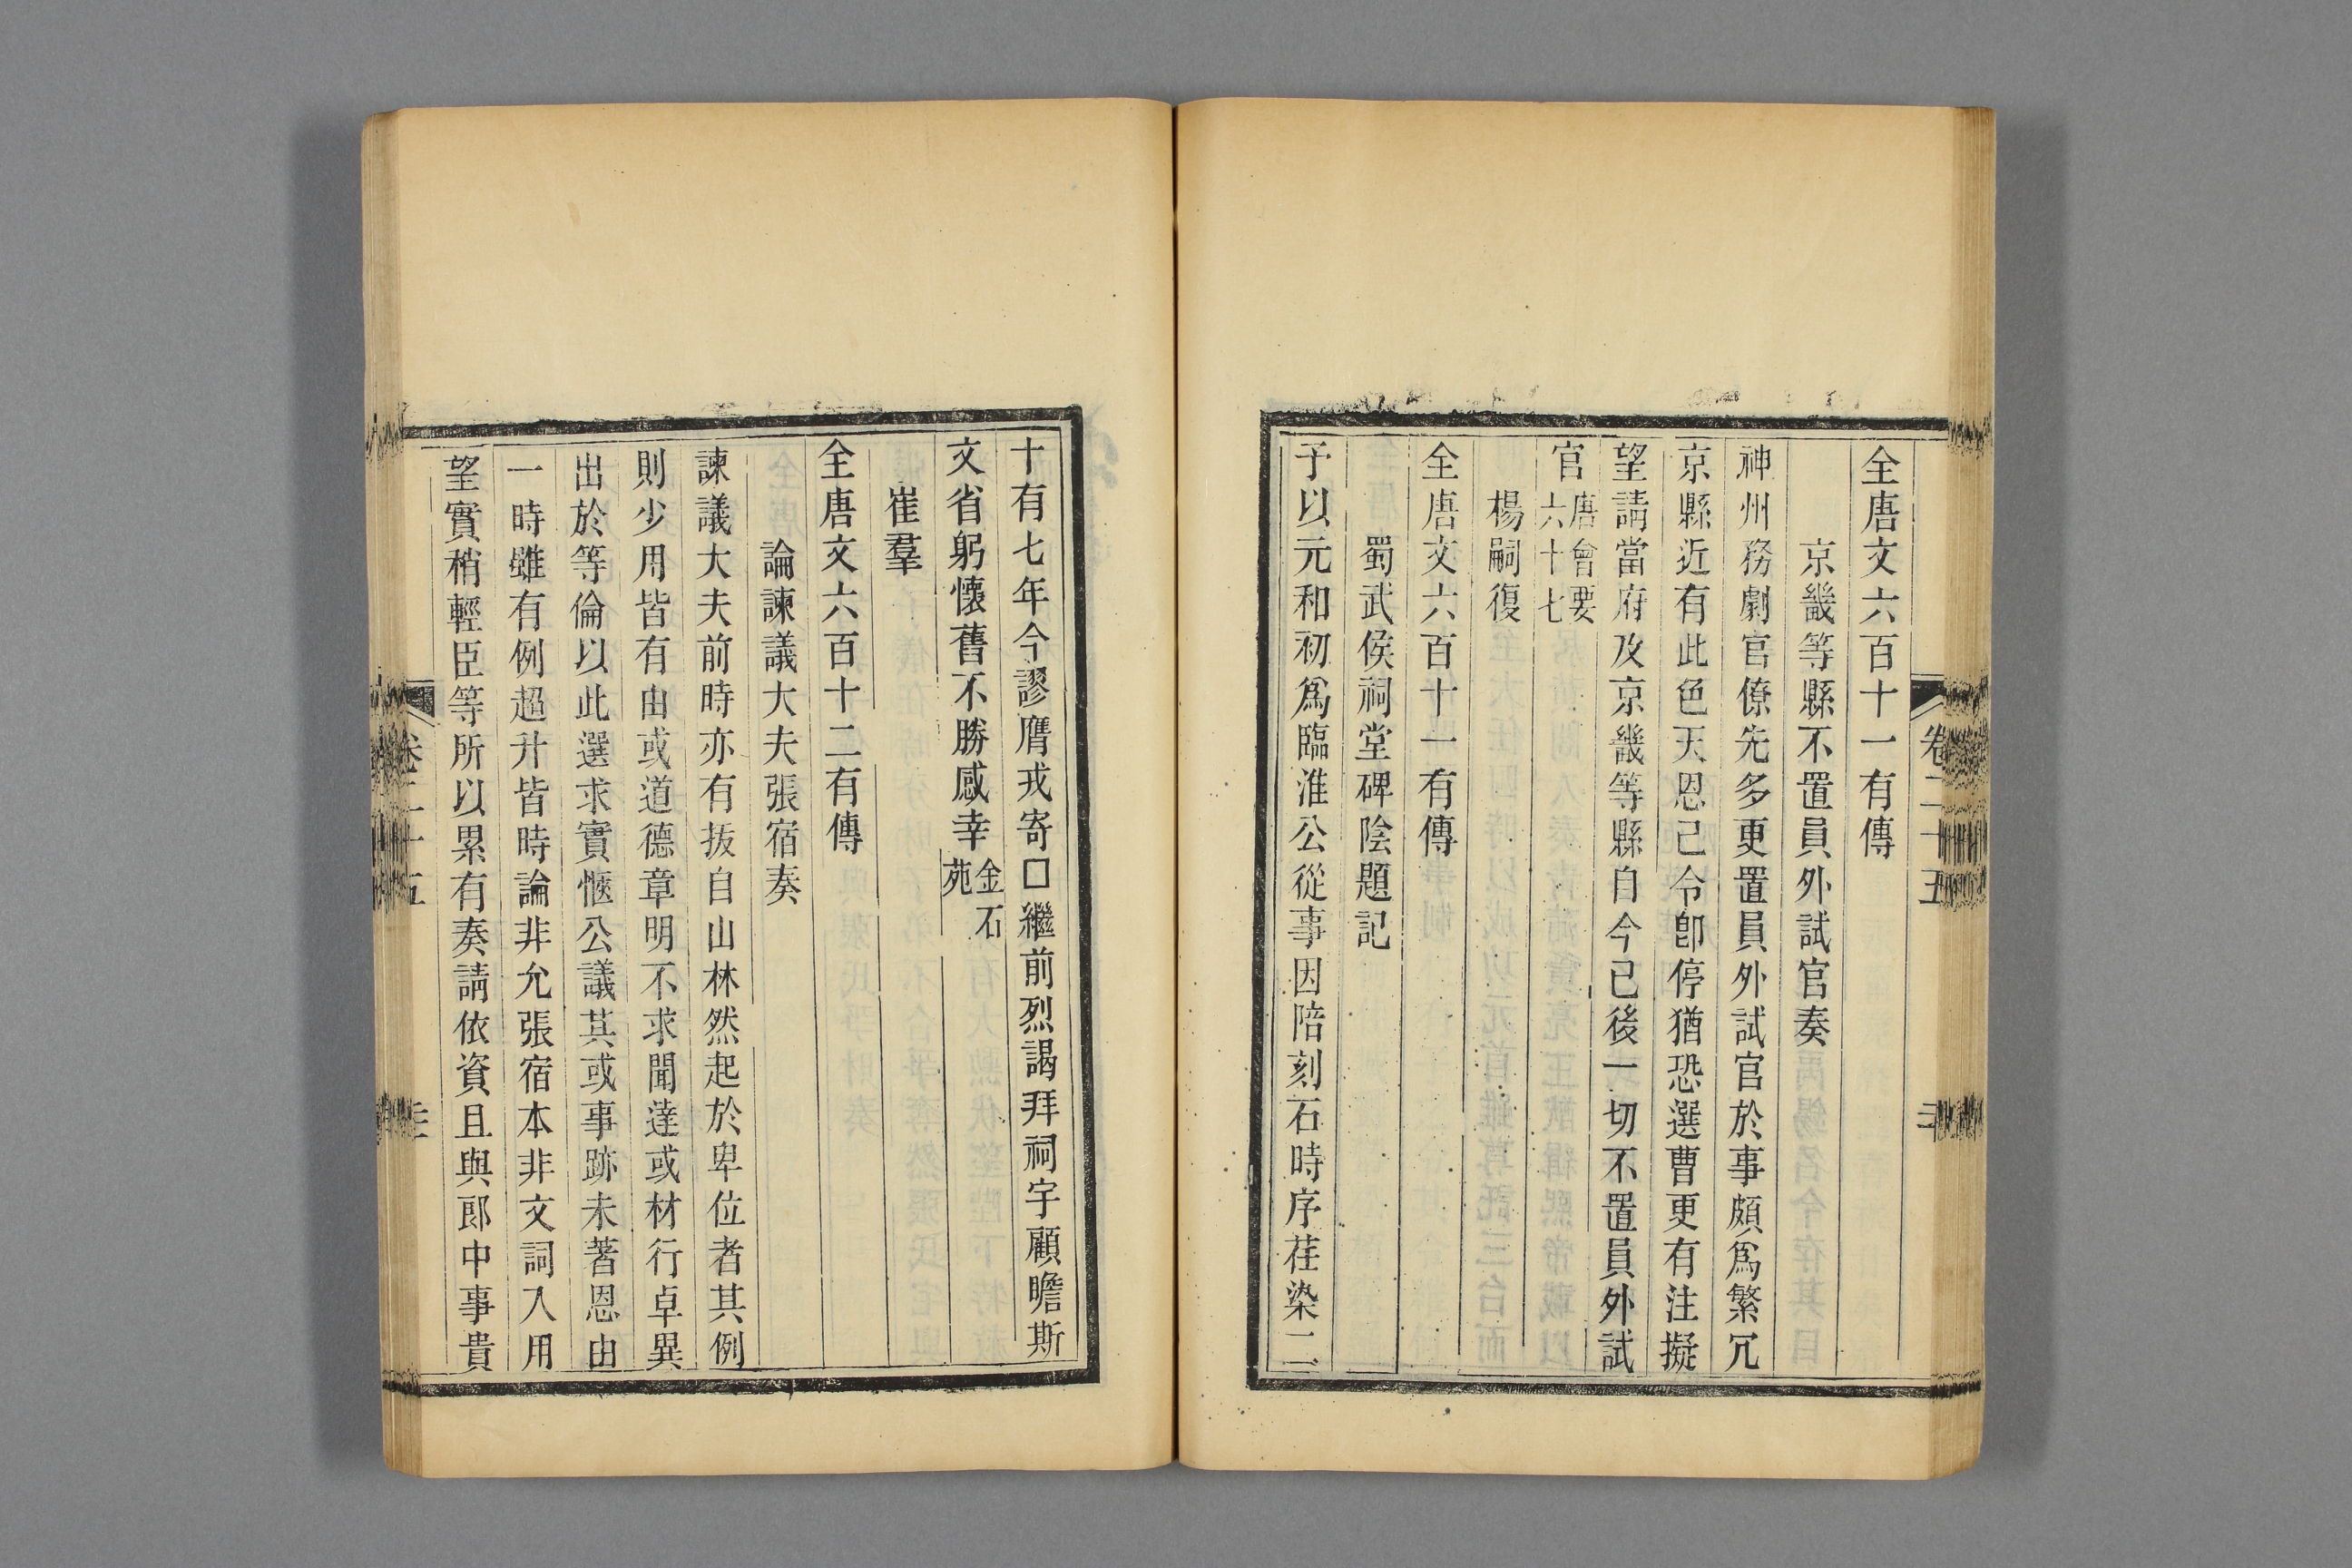 全唐文六百十一有傳
京畿等縣不置員外試官奏
神州務劇官僚先多更置員外試官於事頗爲繁冗
京縣近有此色天恩已令卽停猶恐選曹更有注擬
望請當府及京畿等縣自今已後一切不置員外試
官唐會要六十七
楊嗣復
全唐文六百十一有傳
蜀武侯祠堂碑陰題記
予以元和初爲臨淮公從事因陪刻石時序荏染二
十有七年今謬膺戎寄□繼前烈謁拜祠宇顧瞻斯
文省躬懷舊不勝感幸金石苑
崔羣
全唐文六百十二有傳
論諫議大夫張宿奏
諫議大夫前時亦有拔自山林然起於卑位者其例
則少用皆有由或道德章明不求聞達或材行卓異
出於等倫以此選求實愜公議其或事跡未著恩由
一時雖有例超升皆時論非允張宿本非文詞入用
望實稍輕臣等所以累有奏請依資且與郎中事貴
卷二十五